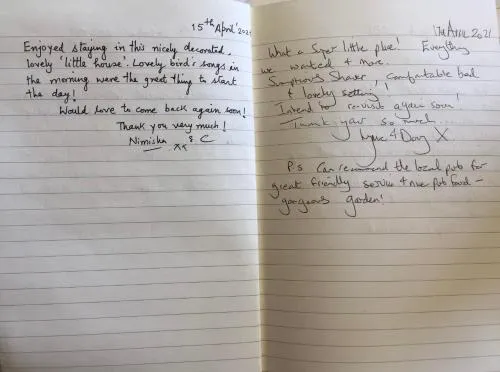 15th April 202
Enjoyed staying in this nicely decorated,
lovely 'little house'. Lovely bird's songs in
the morning were the great thing to start
the day!
Would love to come back again soon!
Thank you very much!
Nimisha & C
xx
17th April 2021
What a Super little place! Everything
we wanted & more.
Sumptuous Shower, comfortable bed
& lovely setting!
Intend to re-visit again soon!
Thank you so much...
Lynne & Doug X
P.s Can recommend the local pub for
great friendly service & nice pub food -
gorgeous garden!